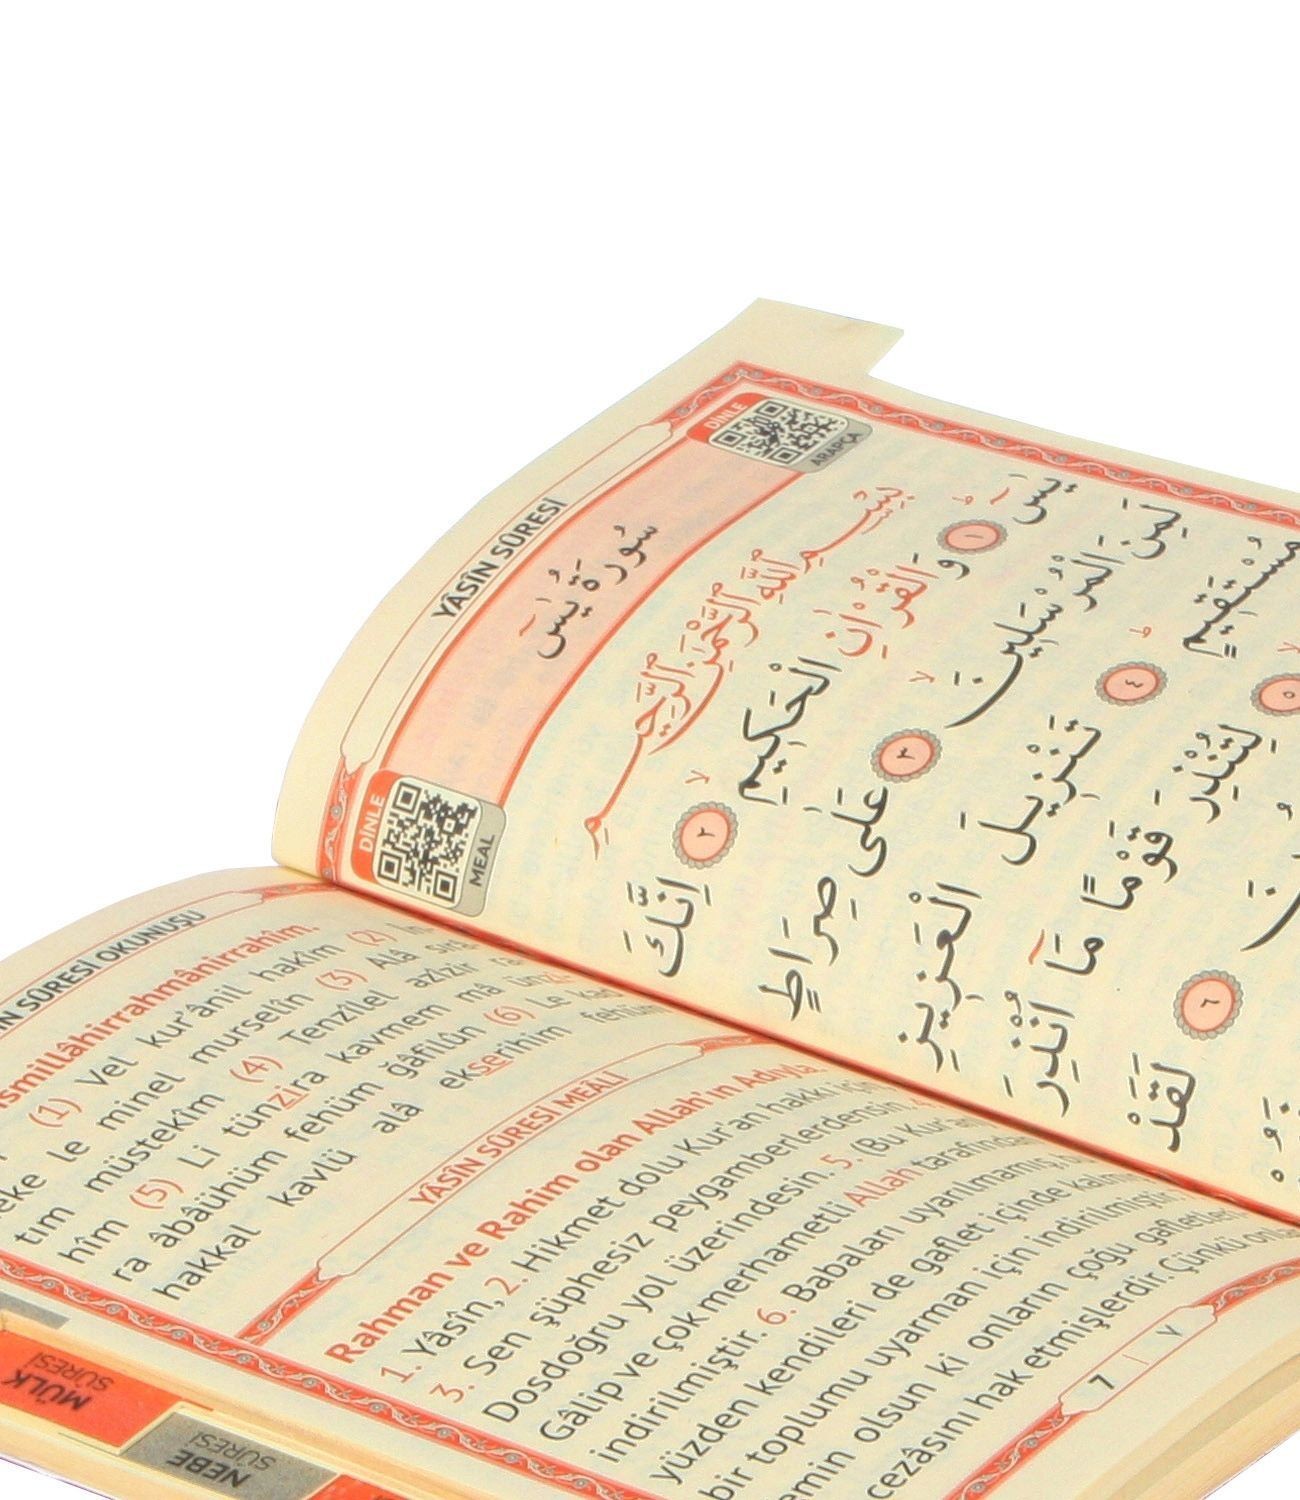 YÂSÎN SÛRESİ
DİNLE
ARAPÇA
سُورَةُ يٰسٓ
DİNLE
MEAL
بِسْمِ اللّٰهِ الرَّحْمٰنِ الرَّحِيمِ
يٰسٓ ١ وَالْقُرْاٰنِ الْحَكِيمِ ٢ اِنَّكَ
لَمِنَ الْمُرْسَلِينَ ٣ عَلٰى صِرَاطٍ
مُسْتَقِيمٍ ٤ تَنْزِيلَ الْعَزِيزِ
٥ لِتُنْذِرَ قَوْمًا مَٓا اُنْذِرَ
٦ لَقَدْ
SÛRESİ OKUNUŞU
(1) Vel kur'ânil hakîm (2) İn-
neke le minel murselîn (3) Alâ sırâ-
tım müstekîm (4) Tenzîlel azîzir ra-
hîm (5) Li tünzira kavmem mâ ün
ra âbâühüm fehüm ğâfilûn (6) Le kad
hakkal kavlü alâ ekserihim fehüm
YÂSÎN SÛRESİ MEÂLİ
Rahman ve Rahim olan Allah'ın Adıyla.
1. Yâsîn, 2. Hikmet dolu Kur'an hakkı için
3. Sen şüphesiz peygamberlerdensin.
Dosdoğru yol üzerindesin. 5. (Bu Kur'an)
Gâlip ve çok merhametli Allah tarafından
indirilmiştir. 6. Babaları uyarılmamış,
yüzden kendileri de gaflet içinde
bir toplumu uyarman için indirilmiştir.
emin olsun ki onların çoğu gafletleri
cezâsını hak etmişlerdir. Çünkü
7 | ٧
MÜLK
SÛRESİ
NEBE
SÛRESİ